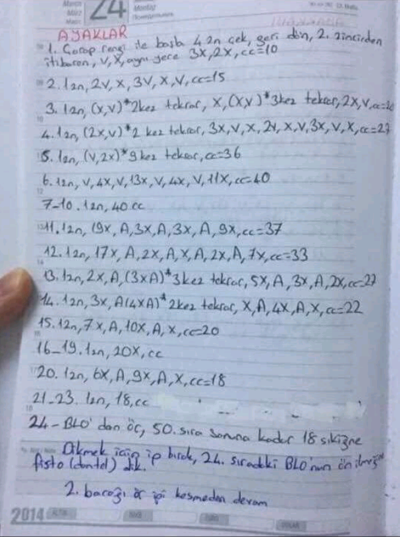 24
AYAKLAR
1. Çorap rengi ile başla 4 zn çek, geri dön, 2. zincirden
itibaren, V, X, aynı yere 3X, 2X, cc=10
2. 1zn, 2V, X, 3V, X, V, cc=15
3. 1zn, (X,V)*2kez tekrar, X, (X,V)*3kez tekrar, 2X, V, cc=20
4. 1zn, (2X,V)*2 kez tekrar, 3X, V, X, 2V, X, V, 3X, V, X, cc=27
5. 1zn, (V,2X)*9kez tekrar, cc=36
6. 1zn, V, 4X, V, 13X, V, 4X, V, 11X, cc=40
7-10. 1zn, 40 cc
11. 1zn, 19X, A, 3X, A, 3X, A, 9X, cc=37
12. 1zn, 17X, A, 2X, A, X, A, 2X, A, 7X, cc=33
13. 1zn, 2X, A, (3XA)*3kez tekrar, 5X, A, 3X, A, 2X, cc=27
14. 1zn, 3X, A(4XA)*2kez tekrar, X, A, 4X, A, X, cc=22
15. 1zn, 7X, A, 10X, A, X, cc=20
16-19. 1zn, 20X, cc
20. 1zn, 6X, A, 9X, A, X, cc=18
21-23. 1zn, 18, cc
24- BLO'dan ör, 50. sıra sonuna kadar 18 sıkiğne
Dikmek için ip bırak, 24. sıradaki BLO'nun ön ilmeğine
fisto (dantel) dik.
2. bacağı ör ipi kesmeden devam
2014